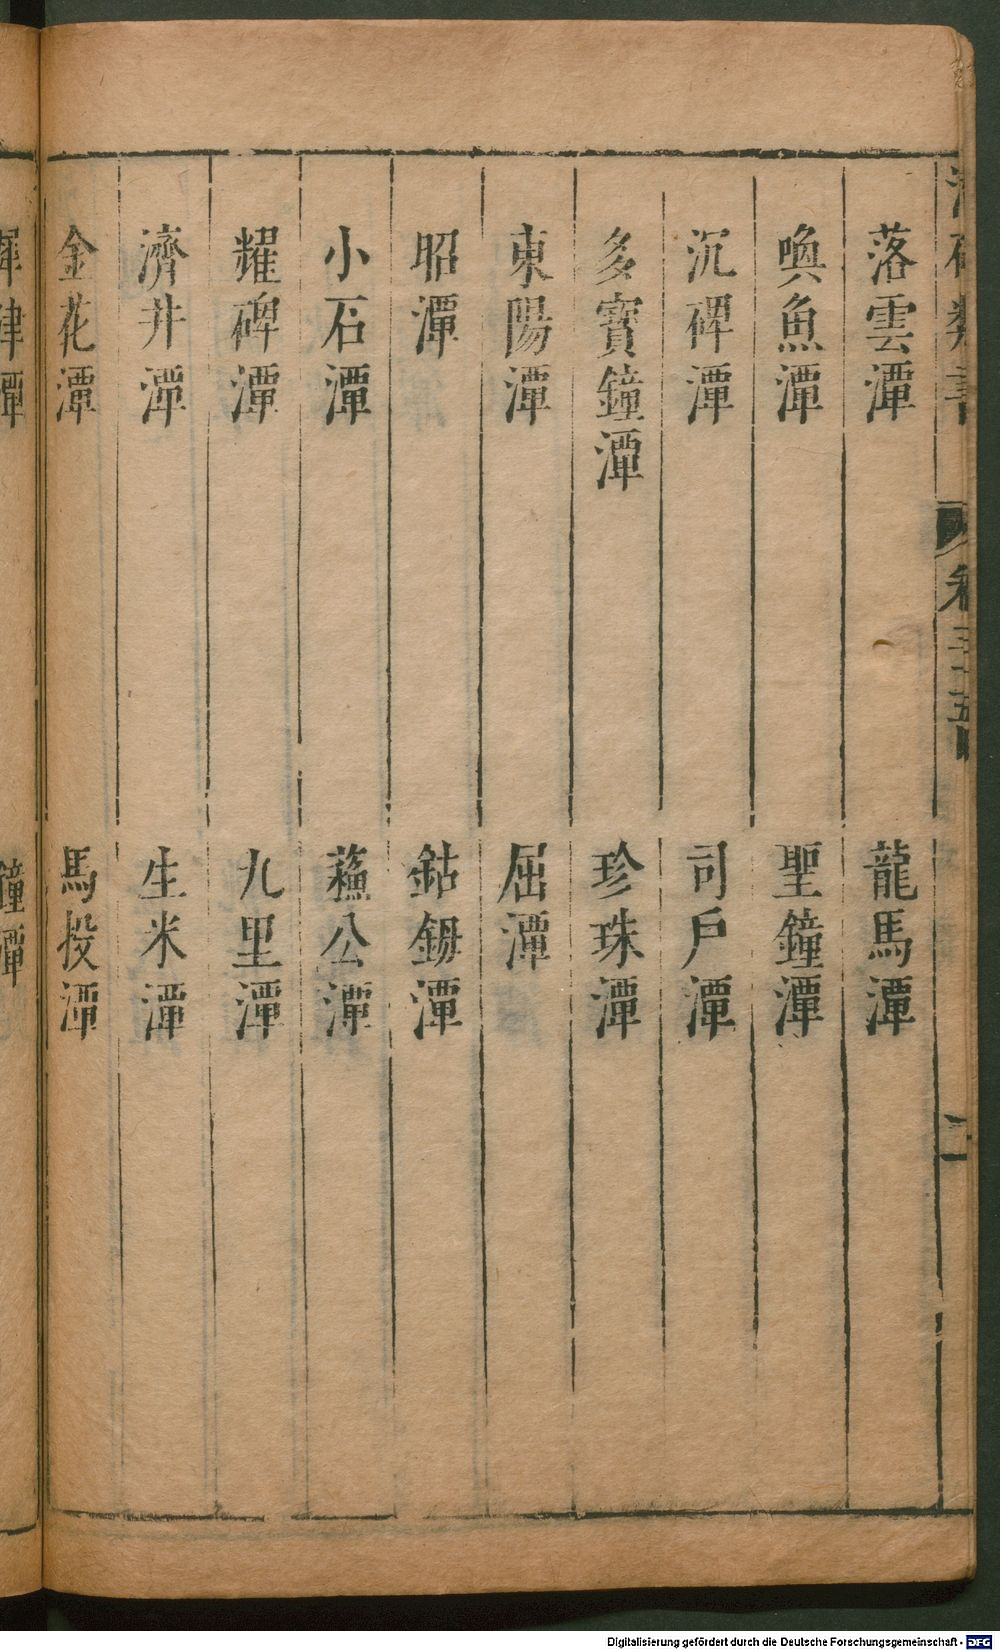 落雲潭　龍馬潭
喚魚潭　聖鐘潭
沉碑潭　司戶潭
多寶鐘潭　珍珠潭
東陽潭　屈潭
昭潭　鈷鉧潭
小石潭　蘓公潭
耀碑潭　九里潭
濟井潭　生米潭
金花潭　馬投潭
鐘潭
Digitalisierung gefördert durch die Deutsche Forschungsgemeinschaft - DFG